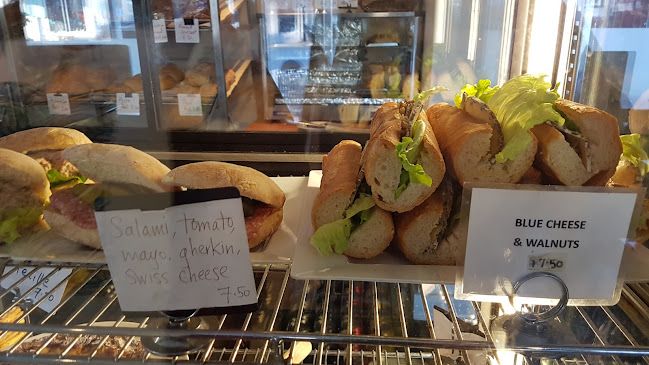 Salami, tomato,
mayo, gherkin,
Swiss cheese
7.50
BLUE CHEESE
& WALNUTS
7.50